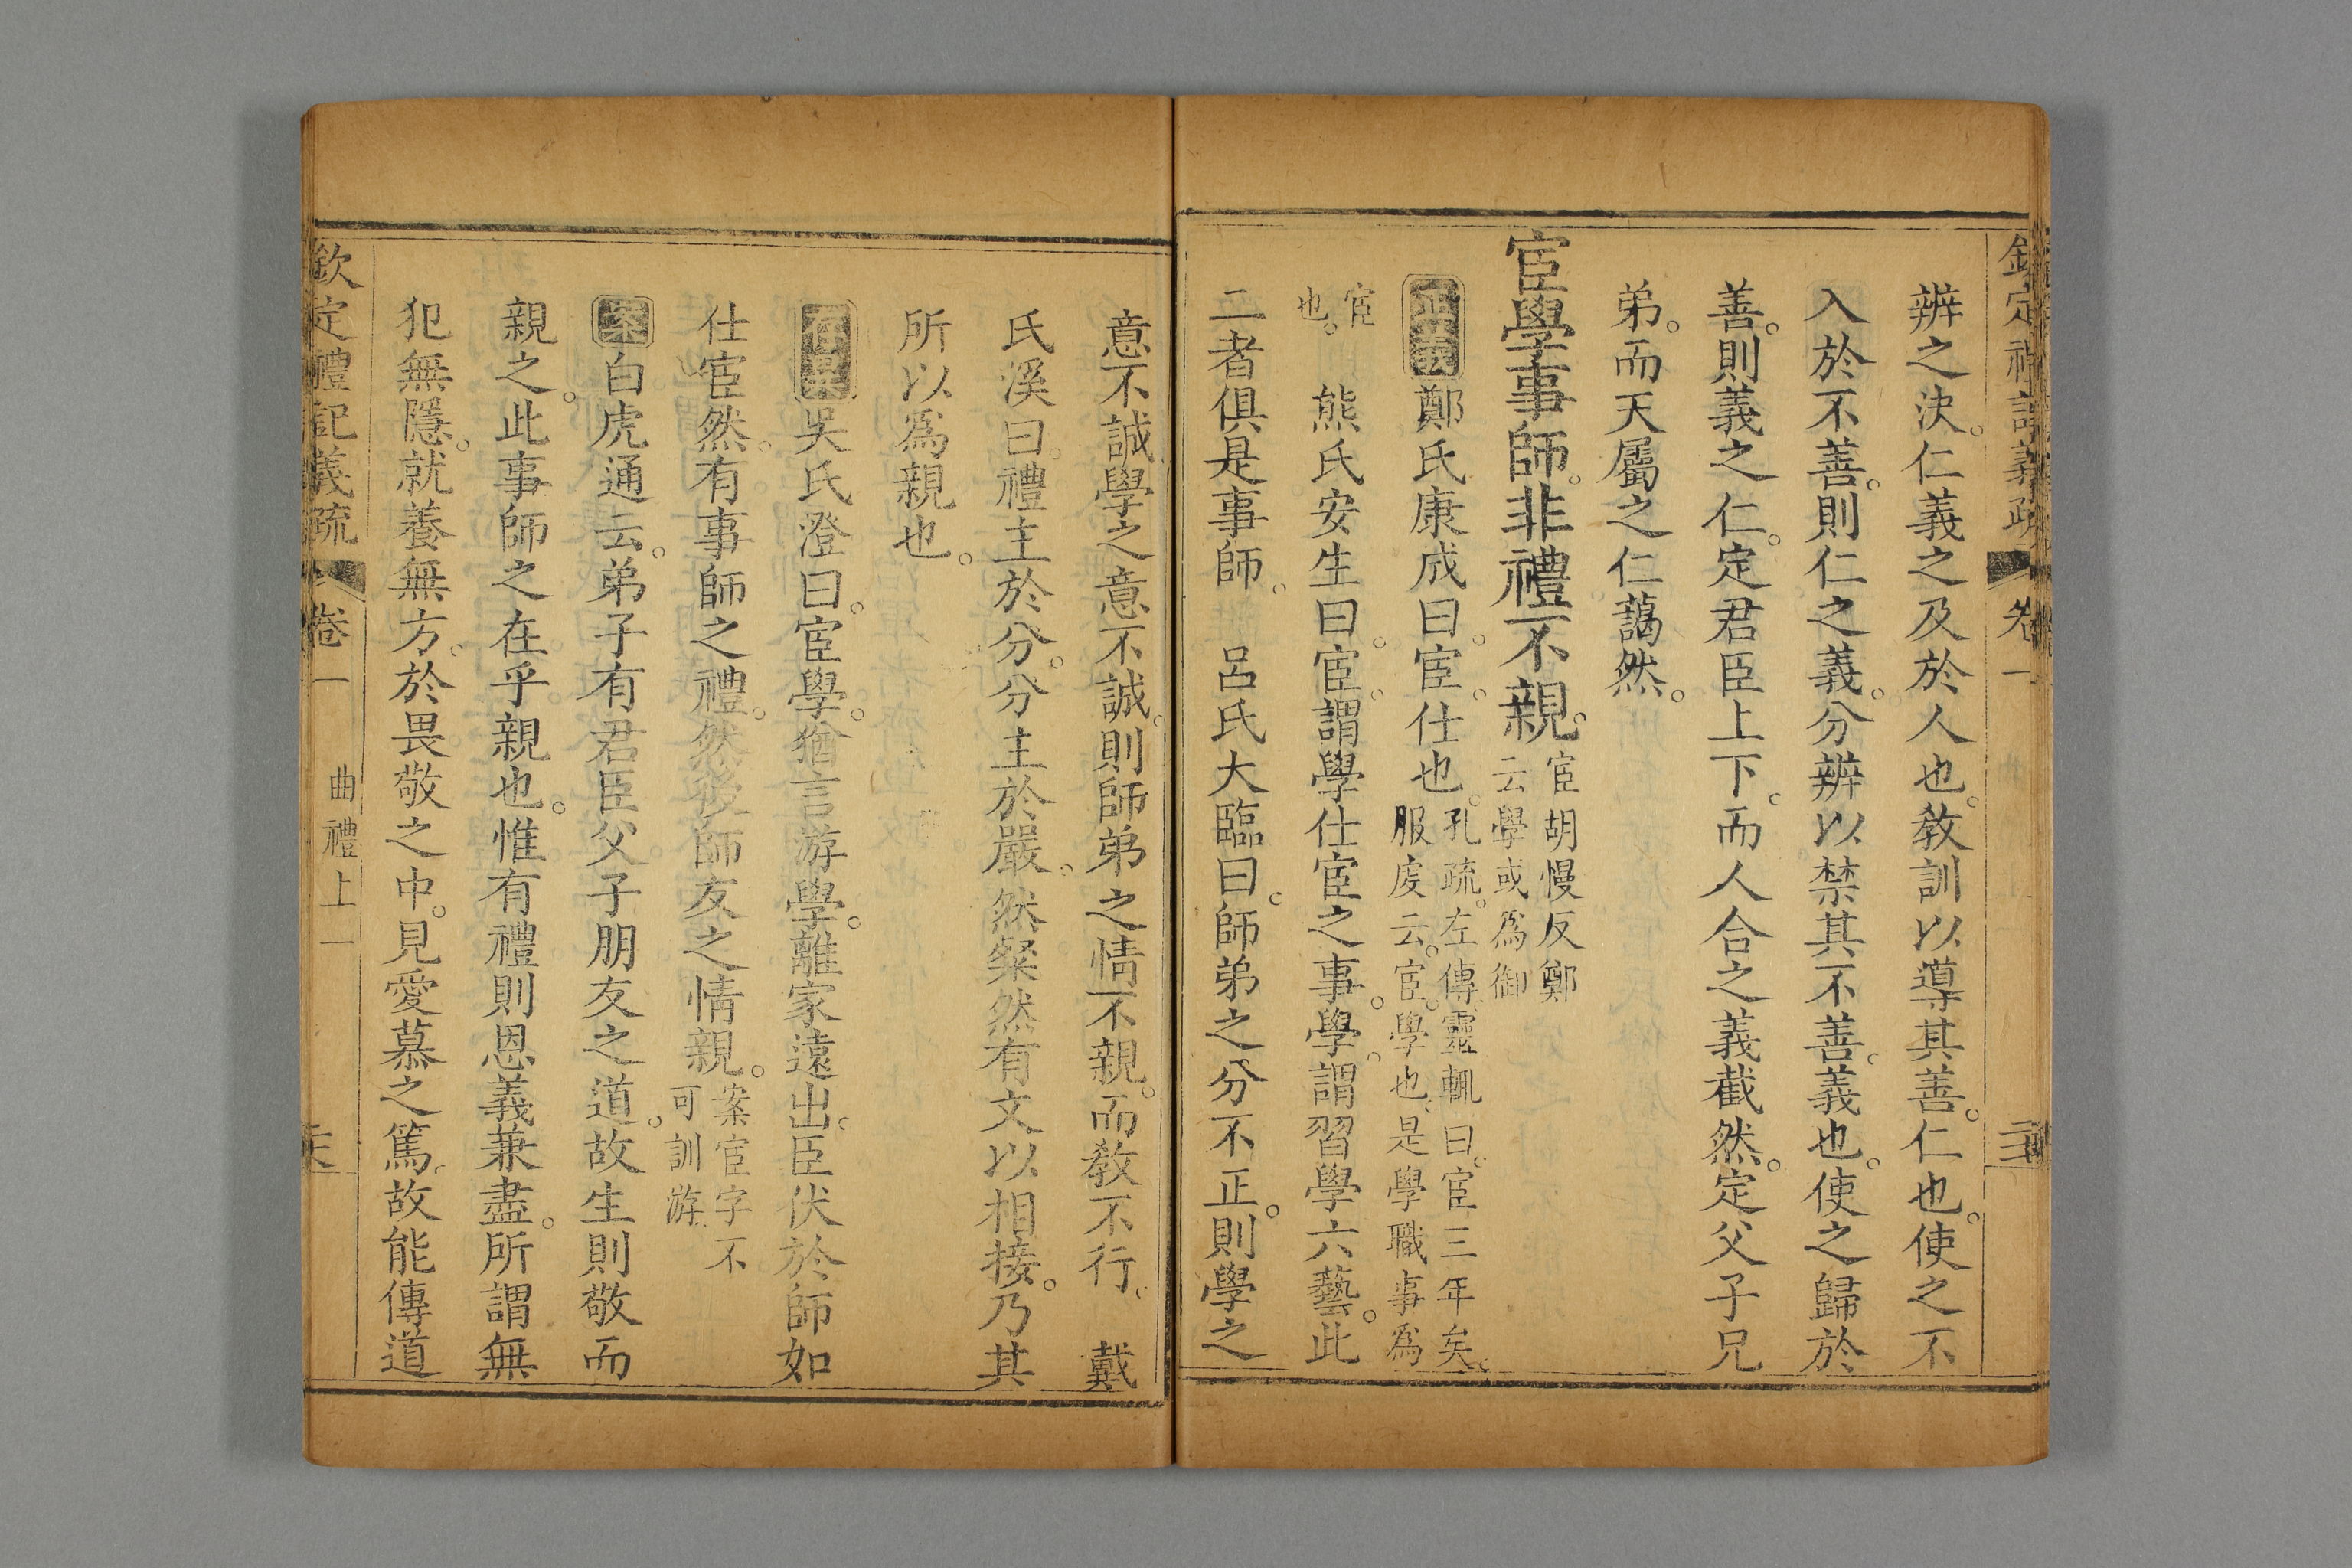 辨之決。仁義之及於人也。教訓以導其善。仁也。使之不
入於不善。則仁之義。分辨以禁其不善。義也。使之歸於
善。則義之仁。定君臣上下。而人合之義截然。定父子兄
弟。而天屬之仁藹然。
宦學事師。非禮不親。
宦胡慢反鄭
云學或爲御
正義鄭氏康成曰。宦。仕也。
孔疏。左傳。靈輒曰。宦三年矣。
服虔云。宦。學也。是學職事爲
宦
也。
熊氏安生曰。宦。謂學仕宦之事。學。謂習學六藝。此
二者俱是事師。呂氏大臨曰。師弟之分不正。則學之
意不誠。學之意不誠。則師弟之情不親。而教不行。戴
氏溪曰。禮主於分。分主於嚴。然粲然有文以相接。乃其
所以爲親也。
存異吳氏澄曰。宦學。猶言游學。離家遠出。臣伏於師如
仕宦然。有事師之禮。然後師友之情親。
案宦字不
可訓游。
案白虎通云。弟子有君臣父子朋友之道。故生則敬而
親之。此事師之在乎親也。惟有禮則恩義兼盡。所謂無
犯無隱。就養無方。於畏敬之中。見愛慕之篤。故能傳道
欽定禮記義疏 卷一 曲禮上一